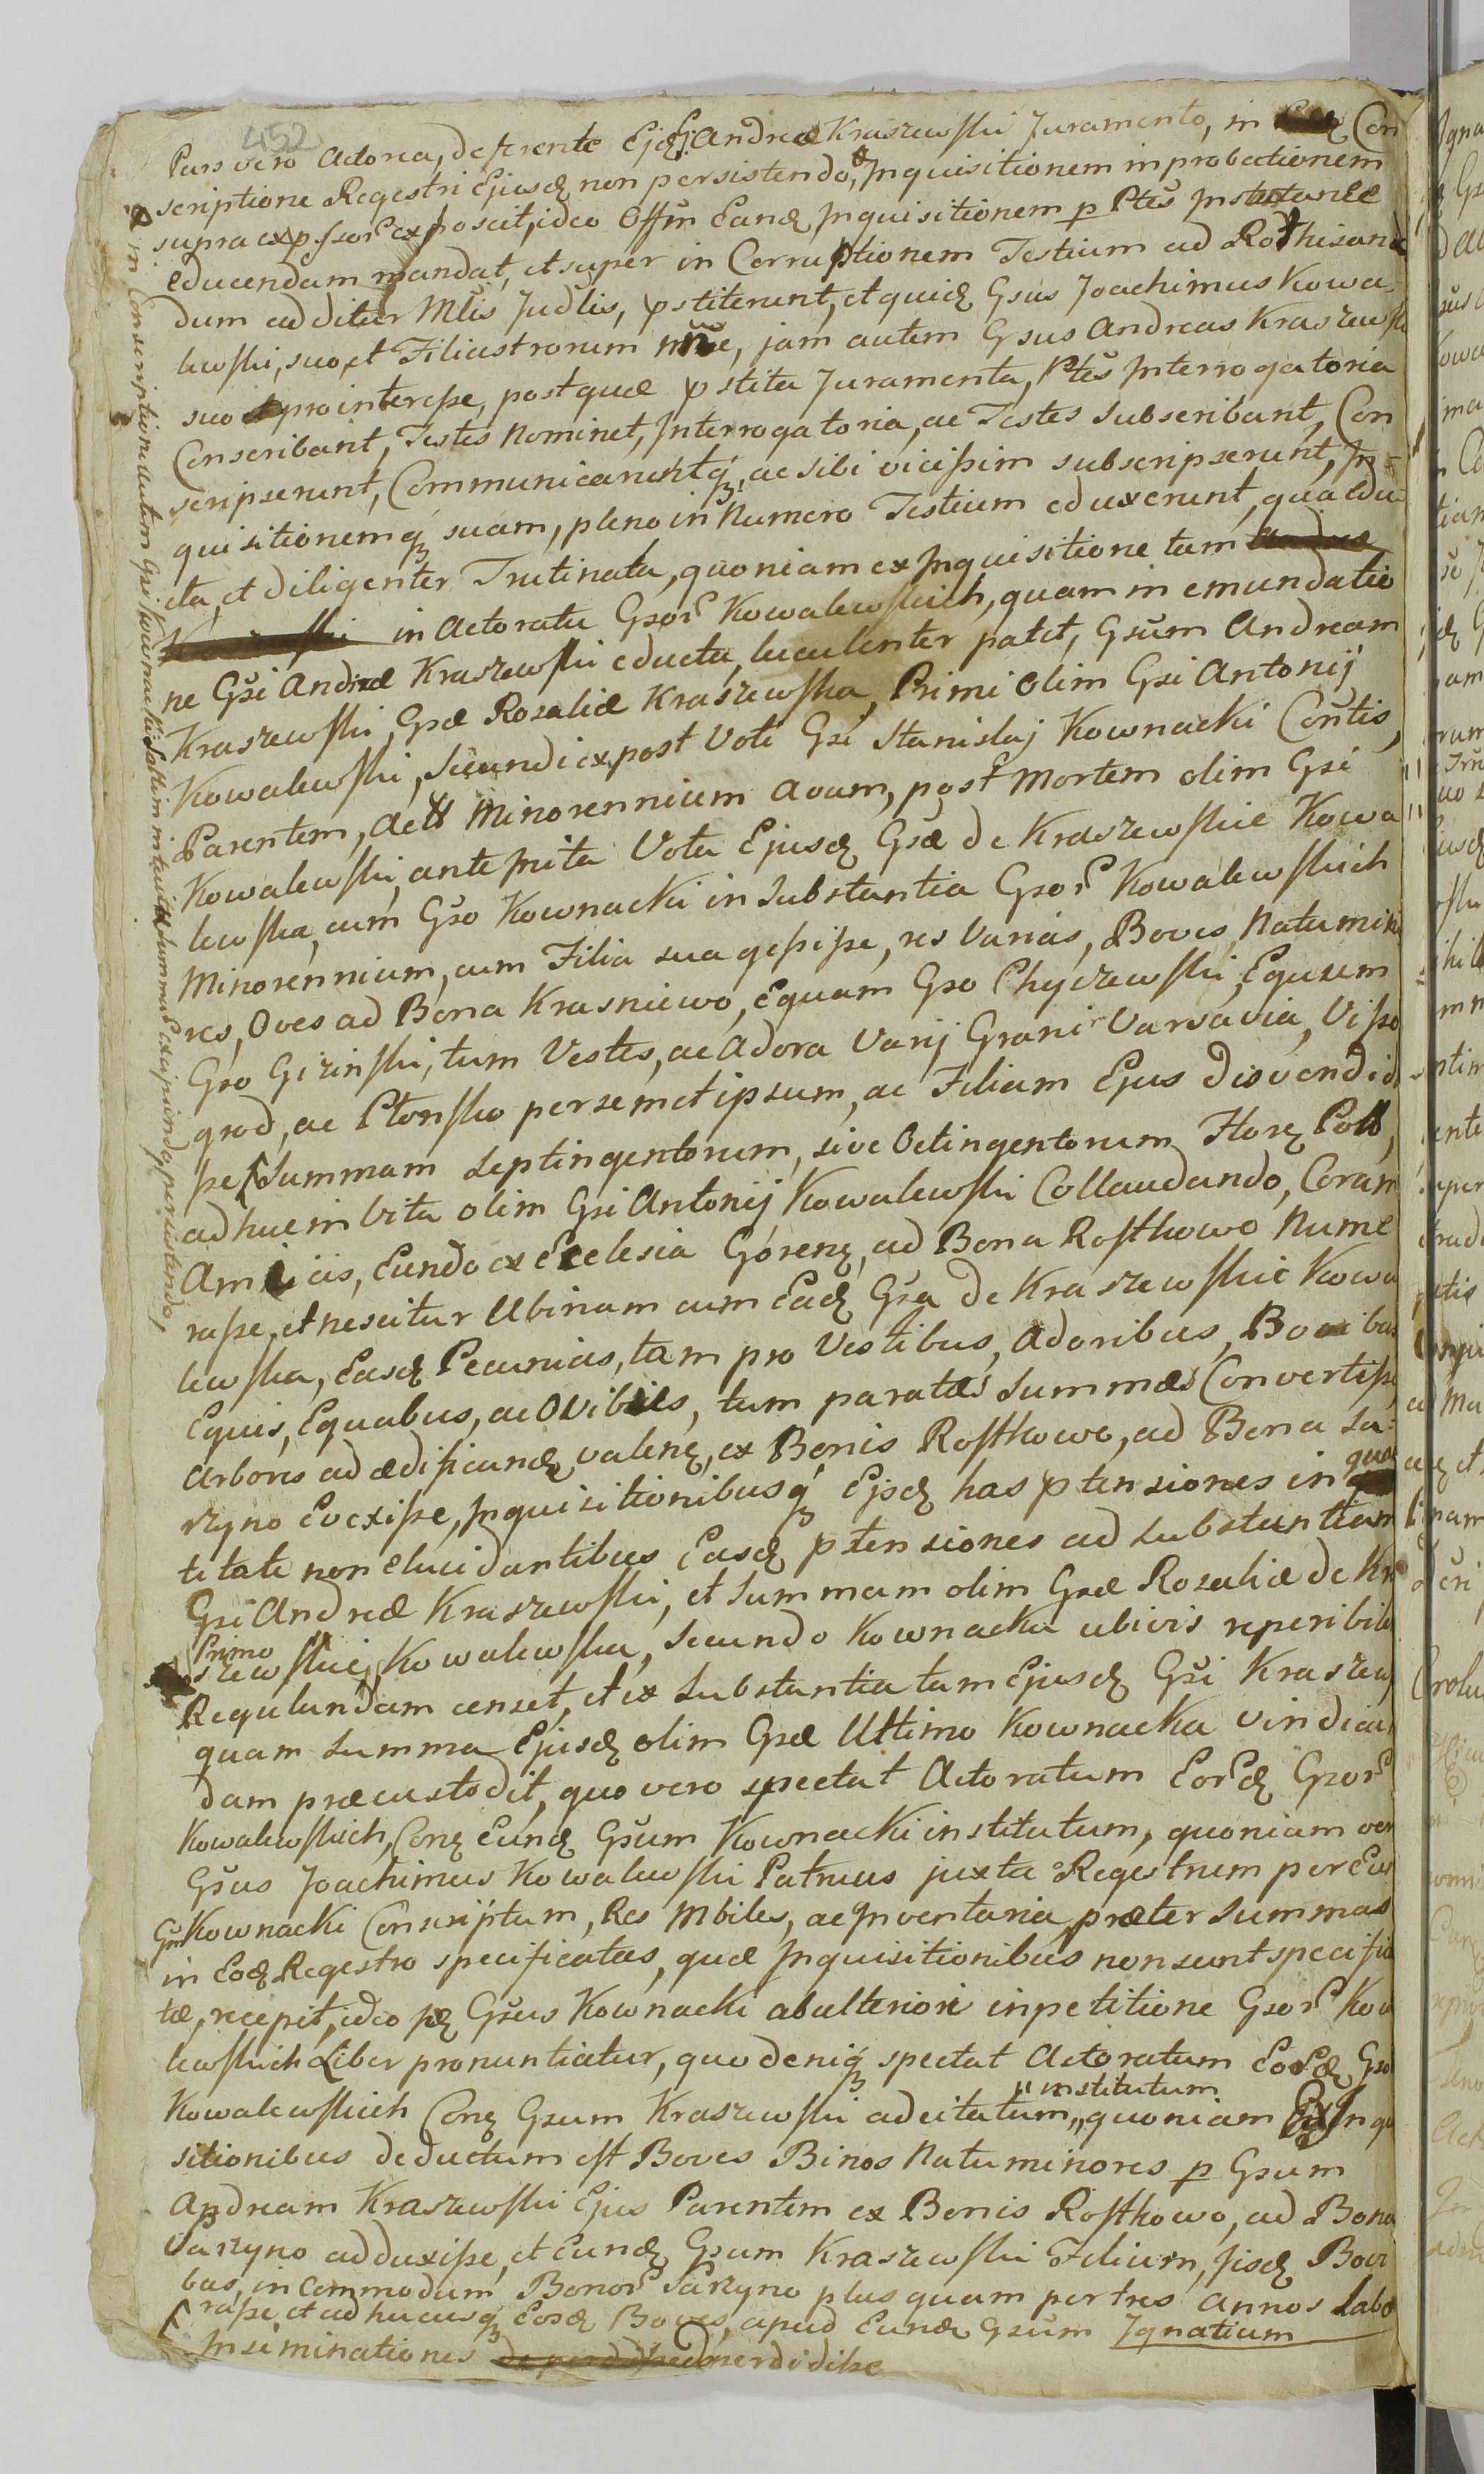 452
Pars vero Actorea, deferente Ejsd Gsi Andreæ Kraszewski Juramento, in Con
scriptione Regestri Ejusd non persistendo, Inquisitionem in probationem
supra expssor exposcit, ideo Offm Eand Inquisitionem p Ptes Instantæ
educendam mandat, et super in Corruptionem Testium ad Rothisan
dum additur Mtis Judlis, pstiterunt, et quid Gsus Joachimus Kowa
lewski, suo et Filiastrorum nne, jam autem Gsus Andreas Kraszewski
suo pro interesse, post quæ pstita Juramenta, Ptes Interrogatoria
Conscribant, Testes Nominet, Interrogatoria, ac Testes Subscribant, Con
scripserunt, Communicaruntq, ac sibi vicissim subscripserunt, In
quisitionemq suam, pleno in Numero Testium eduxerunt, qua edu
cta, et diligenter Trutinata, quoniam ex Inquisitione tam
in Actoratu Gsor Kowalewskich, quam in emundatio
ne Gsi Andreæ Kraszewski educta, luculenter patet, Gsum Andream
Kraszewski, Gsæ Rozaliæ Kraszewska, Primi olim Gsi Antonij
Kowalewski, Secundi expost Voti Gsi Stanislaj Kownacki Contis,
Parentem, Actt Minorennium Avum, post Mortem olim Gsi
Kowalewski, ante Inita Vota Ejusd Gsæ de Kraszewskie Kowa
lewska, cum Gso Kownacki in Substantia Gsor Kowalewskich
Minorennium, cum Filia sua gessisse, res Varias, Boves, Natu mino
res, Oves ad Bona Krasniewo, Equam Gso Chyczewski, Equum
Gso Gizinski, tum Vestes, ac Adora Varij Grani Varsavia, Visso
grod, ac Plonsko per semet ipsum, ac Filiam Ejus disvendidi
sse, Summam Septingentorum, sive Octingentorum Flor Poll,
ad huc in vita olim Gsi Antonij Kowalewski Collaudando, Coram
Amicis, Eundo ex Ecclesia Górene, ad Bona Rostkowo Nume
rasse, et nescitur Ubinam cum Ead Gsa de Kraszewskie Kowa
lewska, Easd Pecunias, tam pro Vestibus, Adoribus, Bovibus
Equis, Equabus, ac Ovibus, tum paratas Summas Convertisse
Arbores ad ædificand valene, ex Bonis Rostkowo, ad Bona Sa
rzyno Evexisse, Inquisitionibusq Ejsd has ptensiones in quan
titate non elucidantibus Easd ptensiones ad Substantiam
Gsi Andreæ Kraszewski, et Summam olim Gsæ Rozaliæ de Kra
szewskie, Primo Kowalewska, Secundo Kownacka ubivis reperibilem
Regulandam censet, et ex Substantia tam Ejusd Gsi Kraszew
quam Summa Ejusd olim Gsæ Ultimo Kownacka vindican
dam præcustodit, quo vero spectat Actoratum Eord Gsor
Kowalewskich, Cone Eund Gsum Kownacki institutum, quoniam ver
Gsus Joachimus Kowalewski Patruus juxta Regestrum per Eun
Gsum Kownacki Conscriptum, Res Mbiles, ac Inventaria præter Summas
in Eod Regestro specificatas, quæ Inquisitionibus non sunt specifica
tæ, recepit, ideo Gsus Kownacki ab ulteriori inpetitione Gsor Kow
lewskich Liber pronuntiatur, quo deniq spectat Actoratum Eord Gsor
Kowalewskich Cone Gsum Kraszewski ad citatum institutum, quoniam Ex Inqu
sitionibus deductum est Boves Binos Natu minores p Gsum
Andream Kraszewski Ejus Parentem ex Bonis Rostkowo, ad Bona
Sarzyno adduxisse, et Eund Gsum Kraszewski Filium, Jisd Bovi
bus, in Commodum Bonor Sarzyno plus quam per tres Annos Labo
rasse, et ad hucusq Eosd Boves, apud Eund Gsum Ignatium
Inseminationes perdidisse
in Conscriptione autem Gsi Kownacki